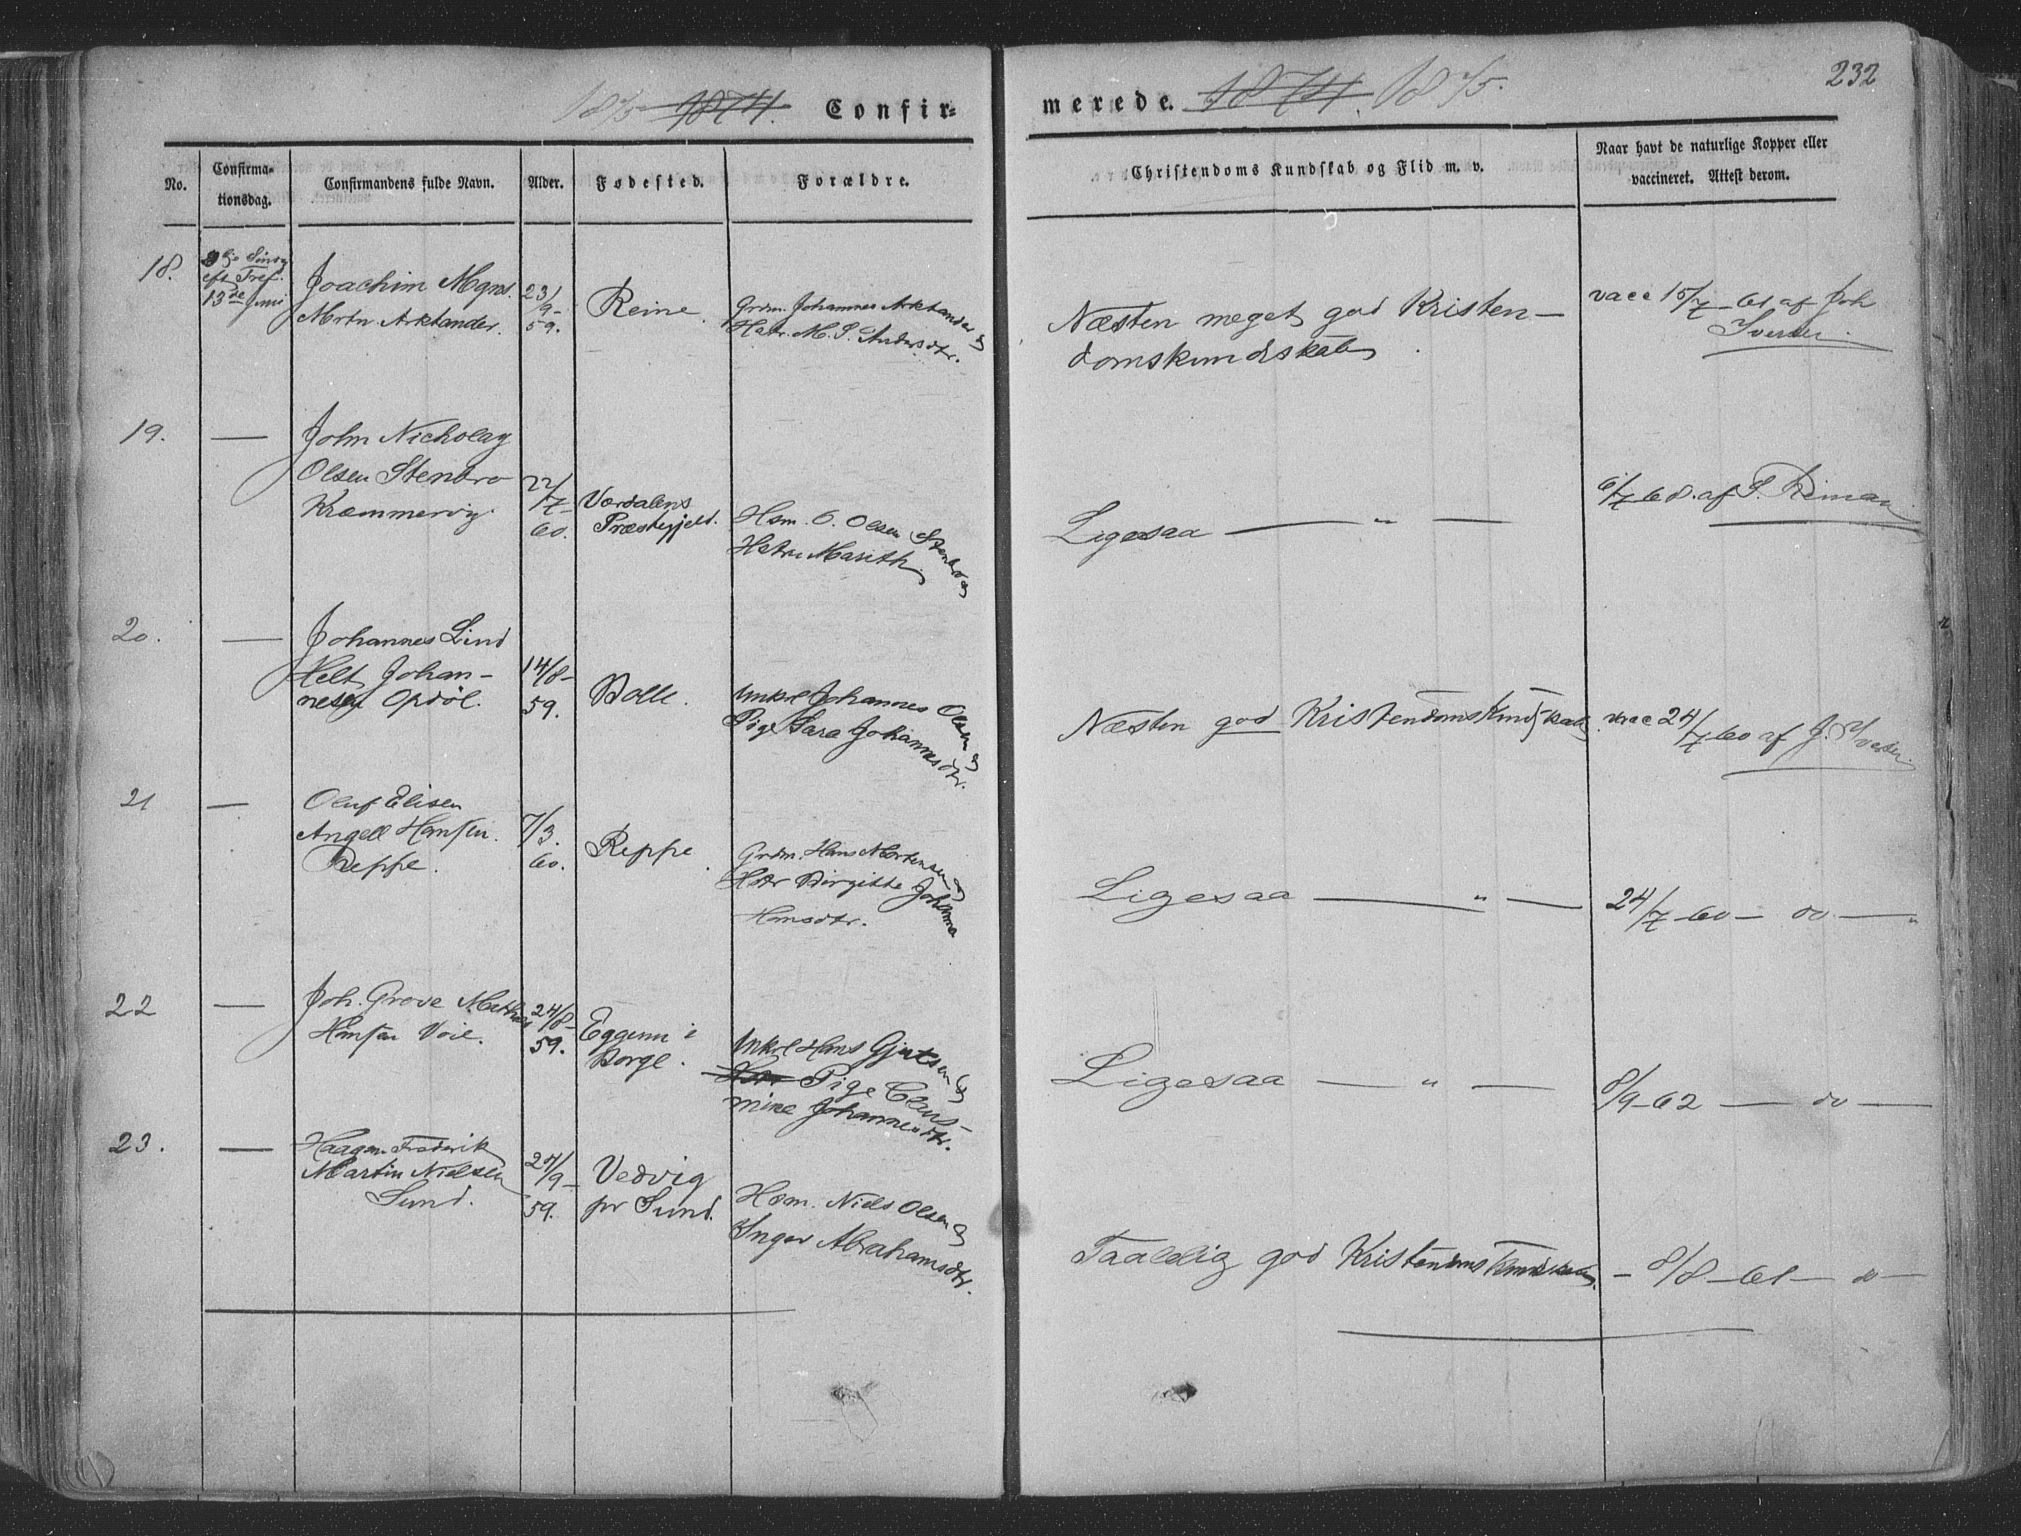 232
1875 1874. Confir=
merede. 1874. 1875.
No.
Confirma-
tionsdag.
Confirmandens fulde Navn.
Alder.
Fødested.
Forældre.
Christendoms Kundskab og Flid m. v.
Naar havt de naturlige Kopper eller
vaccineret. Attest derom.
18.
eft Tref.
13de Juni
Joachim Mgns.
Mrtn. Arktander.
23/9-
59.
Reine.
Grdm. Johannes Arktander og
Hstr. M. P. Andersdtr.
Næsten meget god Kristen-
domskundskab.
vacc 15/7-61 af Joh
Iversen
19.
—
John Nickolay
Olsen Stenbro
Kræmmervig.
22/7-
60.
Værdalens
Præstegjeld.
Hsm. O. Olsen Stenbro og
Hstr. Marith.
Ligesaa — „ —
6/7 68. af P.
20.
—
Johannes Lind
Helt Johan-
nesen Opdøl.
14/8-
59.
Bolle.
Unkrl Johannes Olsen og
Pige Sara Johannesdtr.
Næsten god Kristendomskundskab.
vacc 24/7 60 af J. Iversen.
21
—
Oluf Elisen
Angell Hansen.
Reppe.
7/3.
60.
Reppe.
Grdm. Hans Mortensen og
Hstr Birgitte Johanna
Hansdtr.
Ligesaa — „ —
24/7 60 — do — „
22
—
Joh. Greve Mathias
Hansen Voie.
24/8-
59.
Eggum i
Borge.
Unkrl Hans Gjertsen og
Hstr Pige Clau-
mine Johannesdtr.
Ligesaa — „ —
8/9-62 — do —
23.
—
Haagen Frederik
Martin Nielsen
Sund.
27/9-
59.
Vedvig
pr Sund.
Hsm. Niels Olsen og
Inger Abrahamsdtr.
Taalelig god Kristendomskundskab.
— 8/8-61 — do —